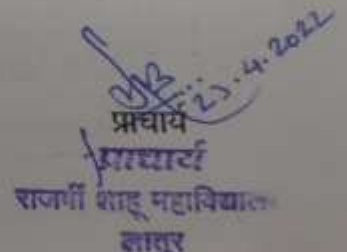 .4.2022
प्राचार्य
प्राचार्य
राजर्षी शाहू महाविद्याल
लातूर